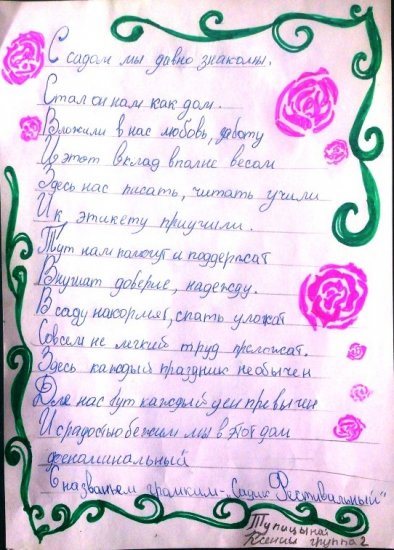 С садом мы давно знакомы.
Стал он нам как дом.
Вложили в нас любовь, заботу
И этот вклад вполне весом
Здесь нас писать, читать учили
И к этикету приучили.
Тут нам помогут и поддержат
Внушат доверие, надежду.
В саду накормят, спать уложат
Совсем не легкий труд приложат.
Здесь каждый праздник необычен
Для нас тут каждый уси превычен
И с радостью бежим мы в этот дом
феноминальный
С названьем громким-„Садик Фестивальный"
Тупицына
Ксения группа 2